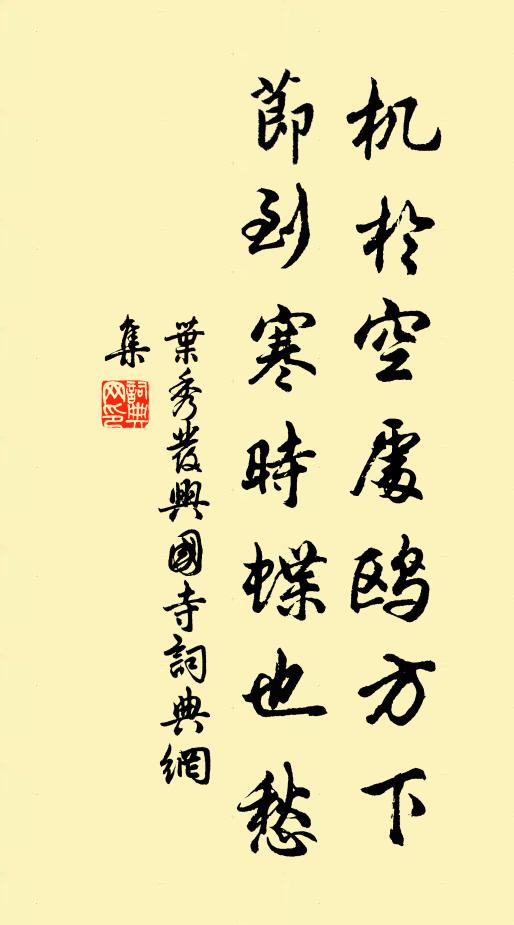 机於空處鸥方下
節到寒時蝶也愁
葉秀發興國寺詞典網
集
詞典網印